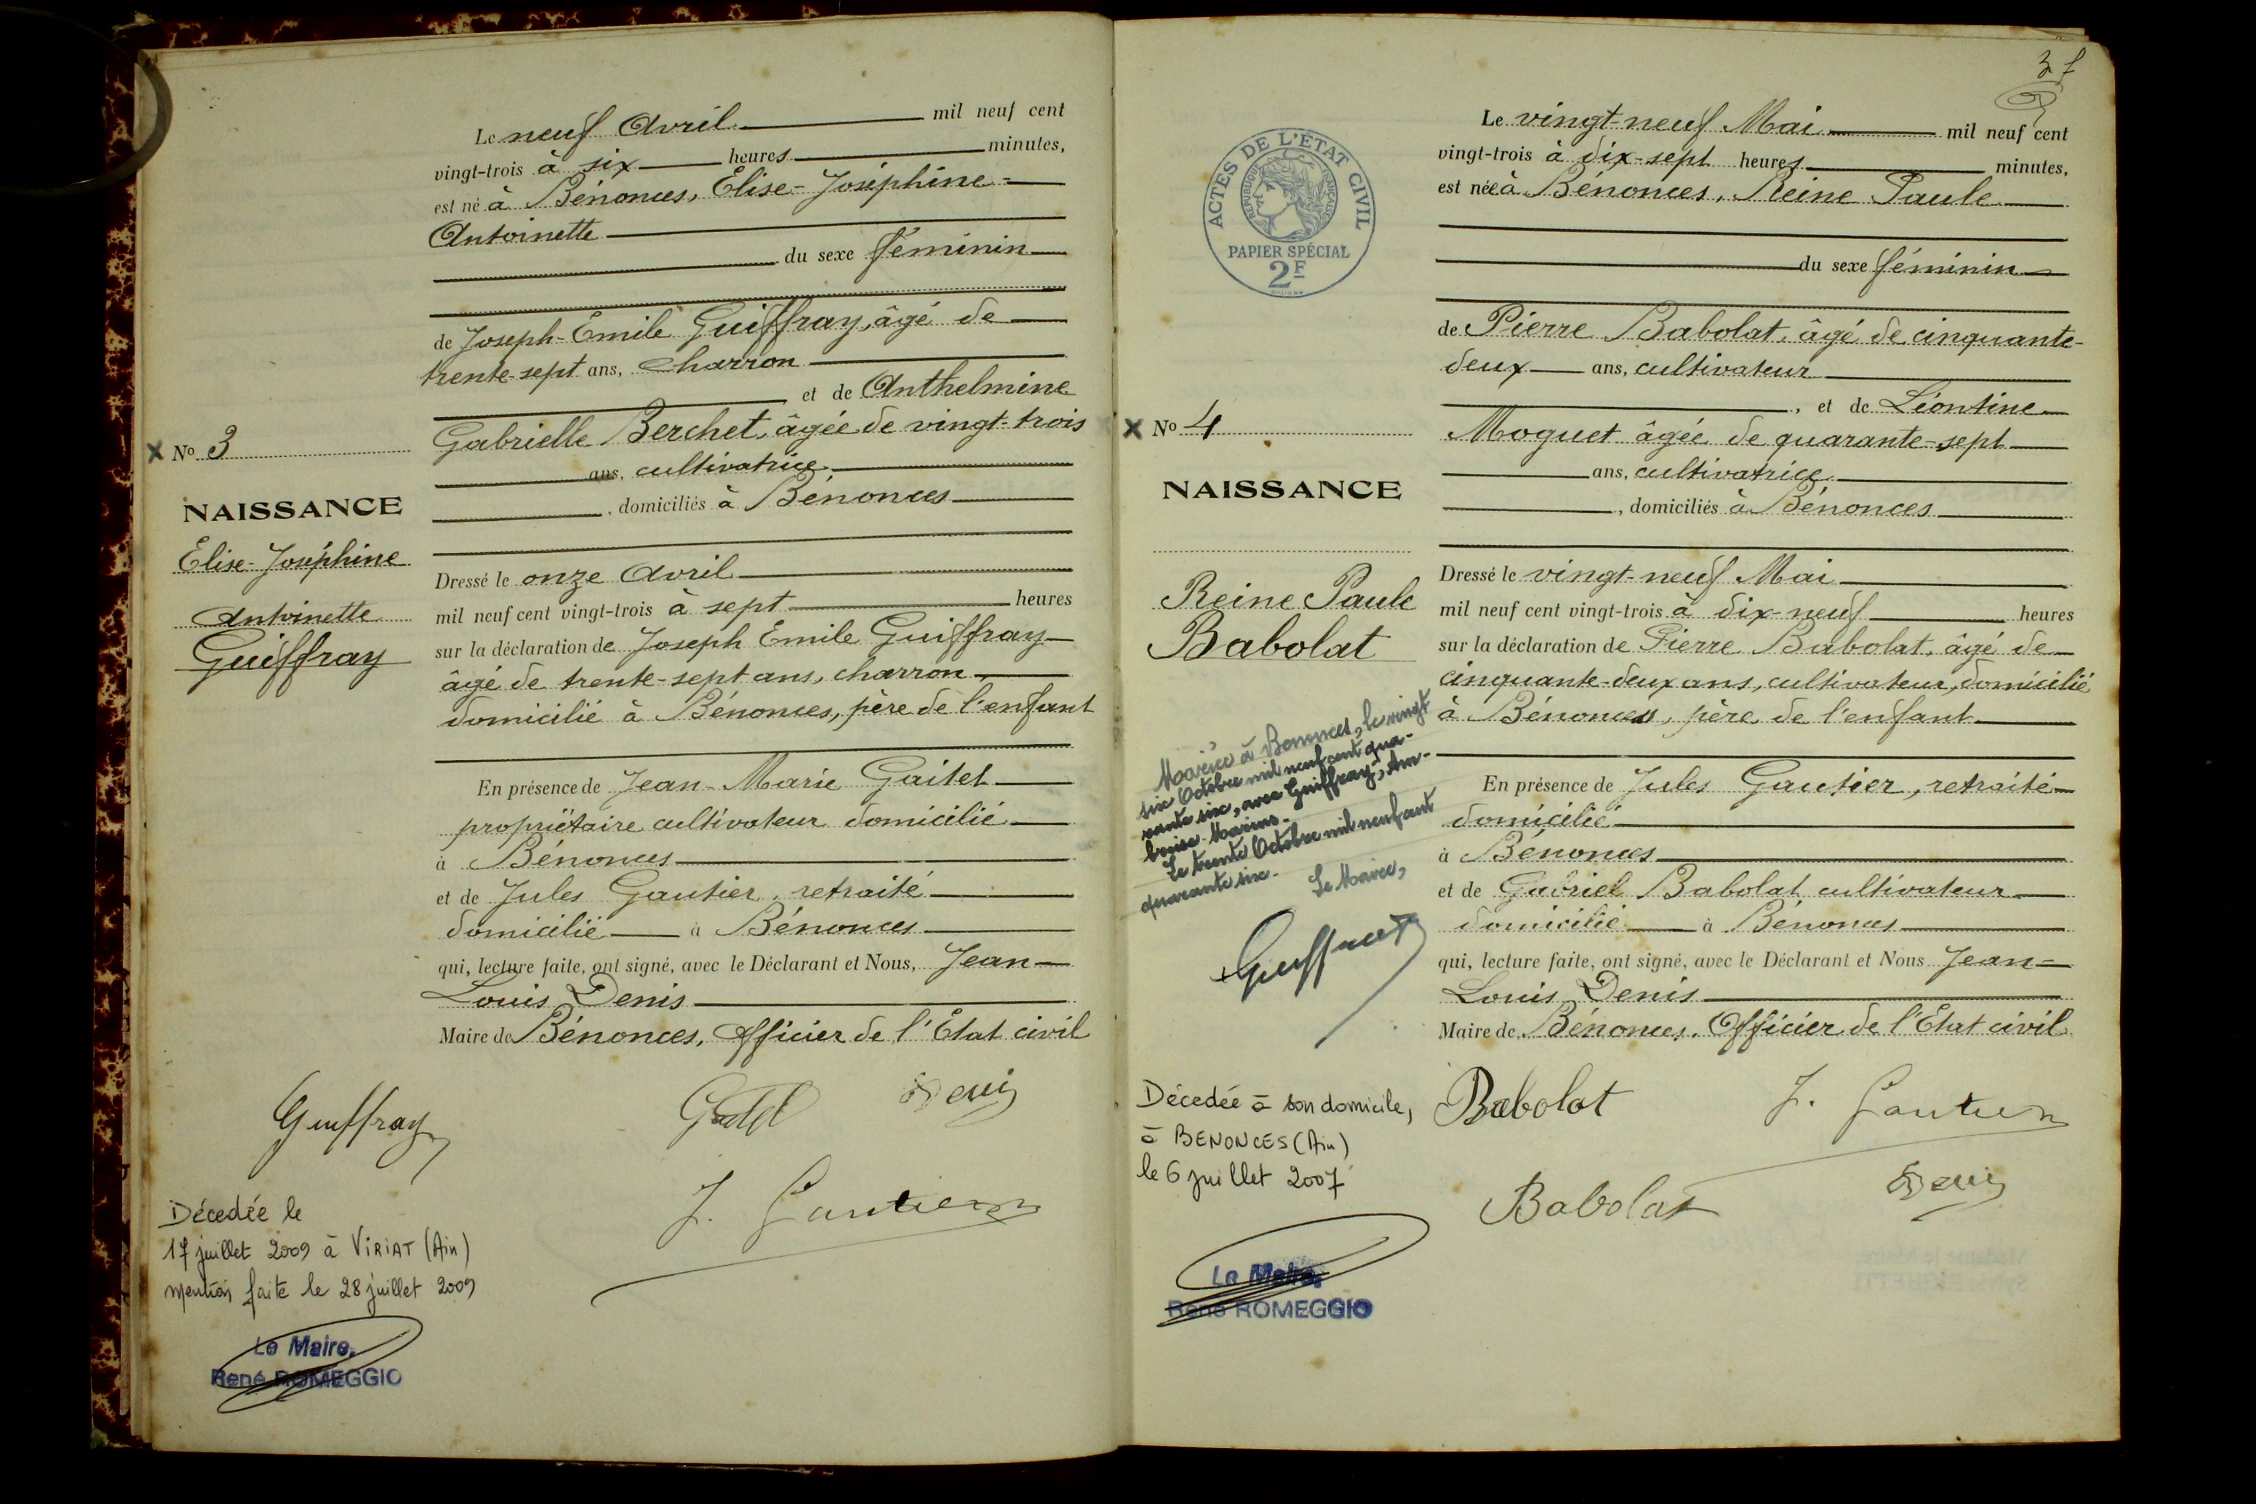 Le neuf Avril mil neuf cent
vingt-trois à six heures minutes,
est né à Bénonces, Elise-Joséphine-
Antoinette
du sexe féminin
de Joseph-Emile Guiffray, âgé de
trente-sept ans, charron
et de Anthelmine
Gabrielle Berchet, âgée de vingt-trois
ans, cultivatrice
, domiciliés à Bénonces
Dressé le onze Avril
mil neuf cent vingt-trois à sept heures
sur la déclaration de Joseph Emile Guiffray
âgé de trente-sept ans, charron,
domicilié à Bénonces, père de l'enfant
En présence de Jean-Marie Gaitet
propriétaire cultivateur domicilié
à Bénonces
et de Jules Gautier, retraité
domicilié à Bénonces
qui, lecture faite, ont signé, avec le Déclarant et Nous, Jean-
Louis Denis
Maire de Bénonces, Officier de l'Etat civil
x No 3
NAISSANCE
Elise-Joséphine
Antoinette
Guiffray
Guiffray
Denis
J. Gautier
Décedée le
17 juillet 2009 à VIRIAT (Ain)
mention faite le 28 juillet 2009
Le Maire,
René ROMEGGIO
ACTES DE L'ETAT CIVIL
REPUBLIQUE FRANÇAISE
PAPIER SPÉCIAL
2F
Le vingt-neuf Mai mil neuf cent
vingt-trois à dix-sept heures minutes,
est née à Bénonces, Reine Paule
du sexe féminin
de Pierre Babolat, âgé de cinquante-
deux ans, cultivateur
, et de Léontine
Moguet âgée de quarante-sept
ans, cultivatrice
, domiciliés à Bénonces
Dressé le vingt-neuf Mai
mil neuf cent vingt-trois à dix-neuf heures
sur la déclaration de Pierre Babolat, âgé de
cinquante-deux ans, cultivateur, domicilié
à Bénonces, père de l'enfant
En présence de Jules Gautier, retraité
domicilié
à Bénonces
et de Gabriel Babolat cultivateur
domicilié à Bénonces
qui, lecture faite, ont signé, avec le Déclarant et Nous Jean-
Louis Denis
Maire de Bénonces, Officier de l'Etat civil
x No 4
NAISSANCE
Reine Paule
Babolat
Mariée à Bénonces, le vingt
six Octobre mil neuf cent qua-
rante six, avec Guiffray, Am-
broise Marius.
Le trente Octobre mil neuf cent
quarante six.
Le Maire,
Décedée à son domicile,
à BENONCES (Ain)
le 6 juillet 2007
Le Maire,
René ROMEGGIO
Babolat
J. Gautier
Babolat
Denis